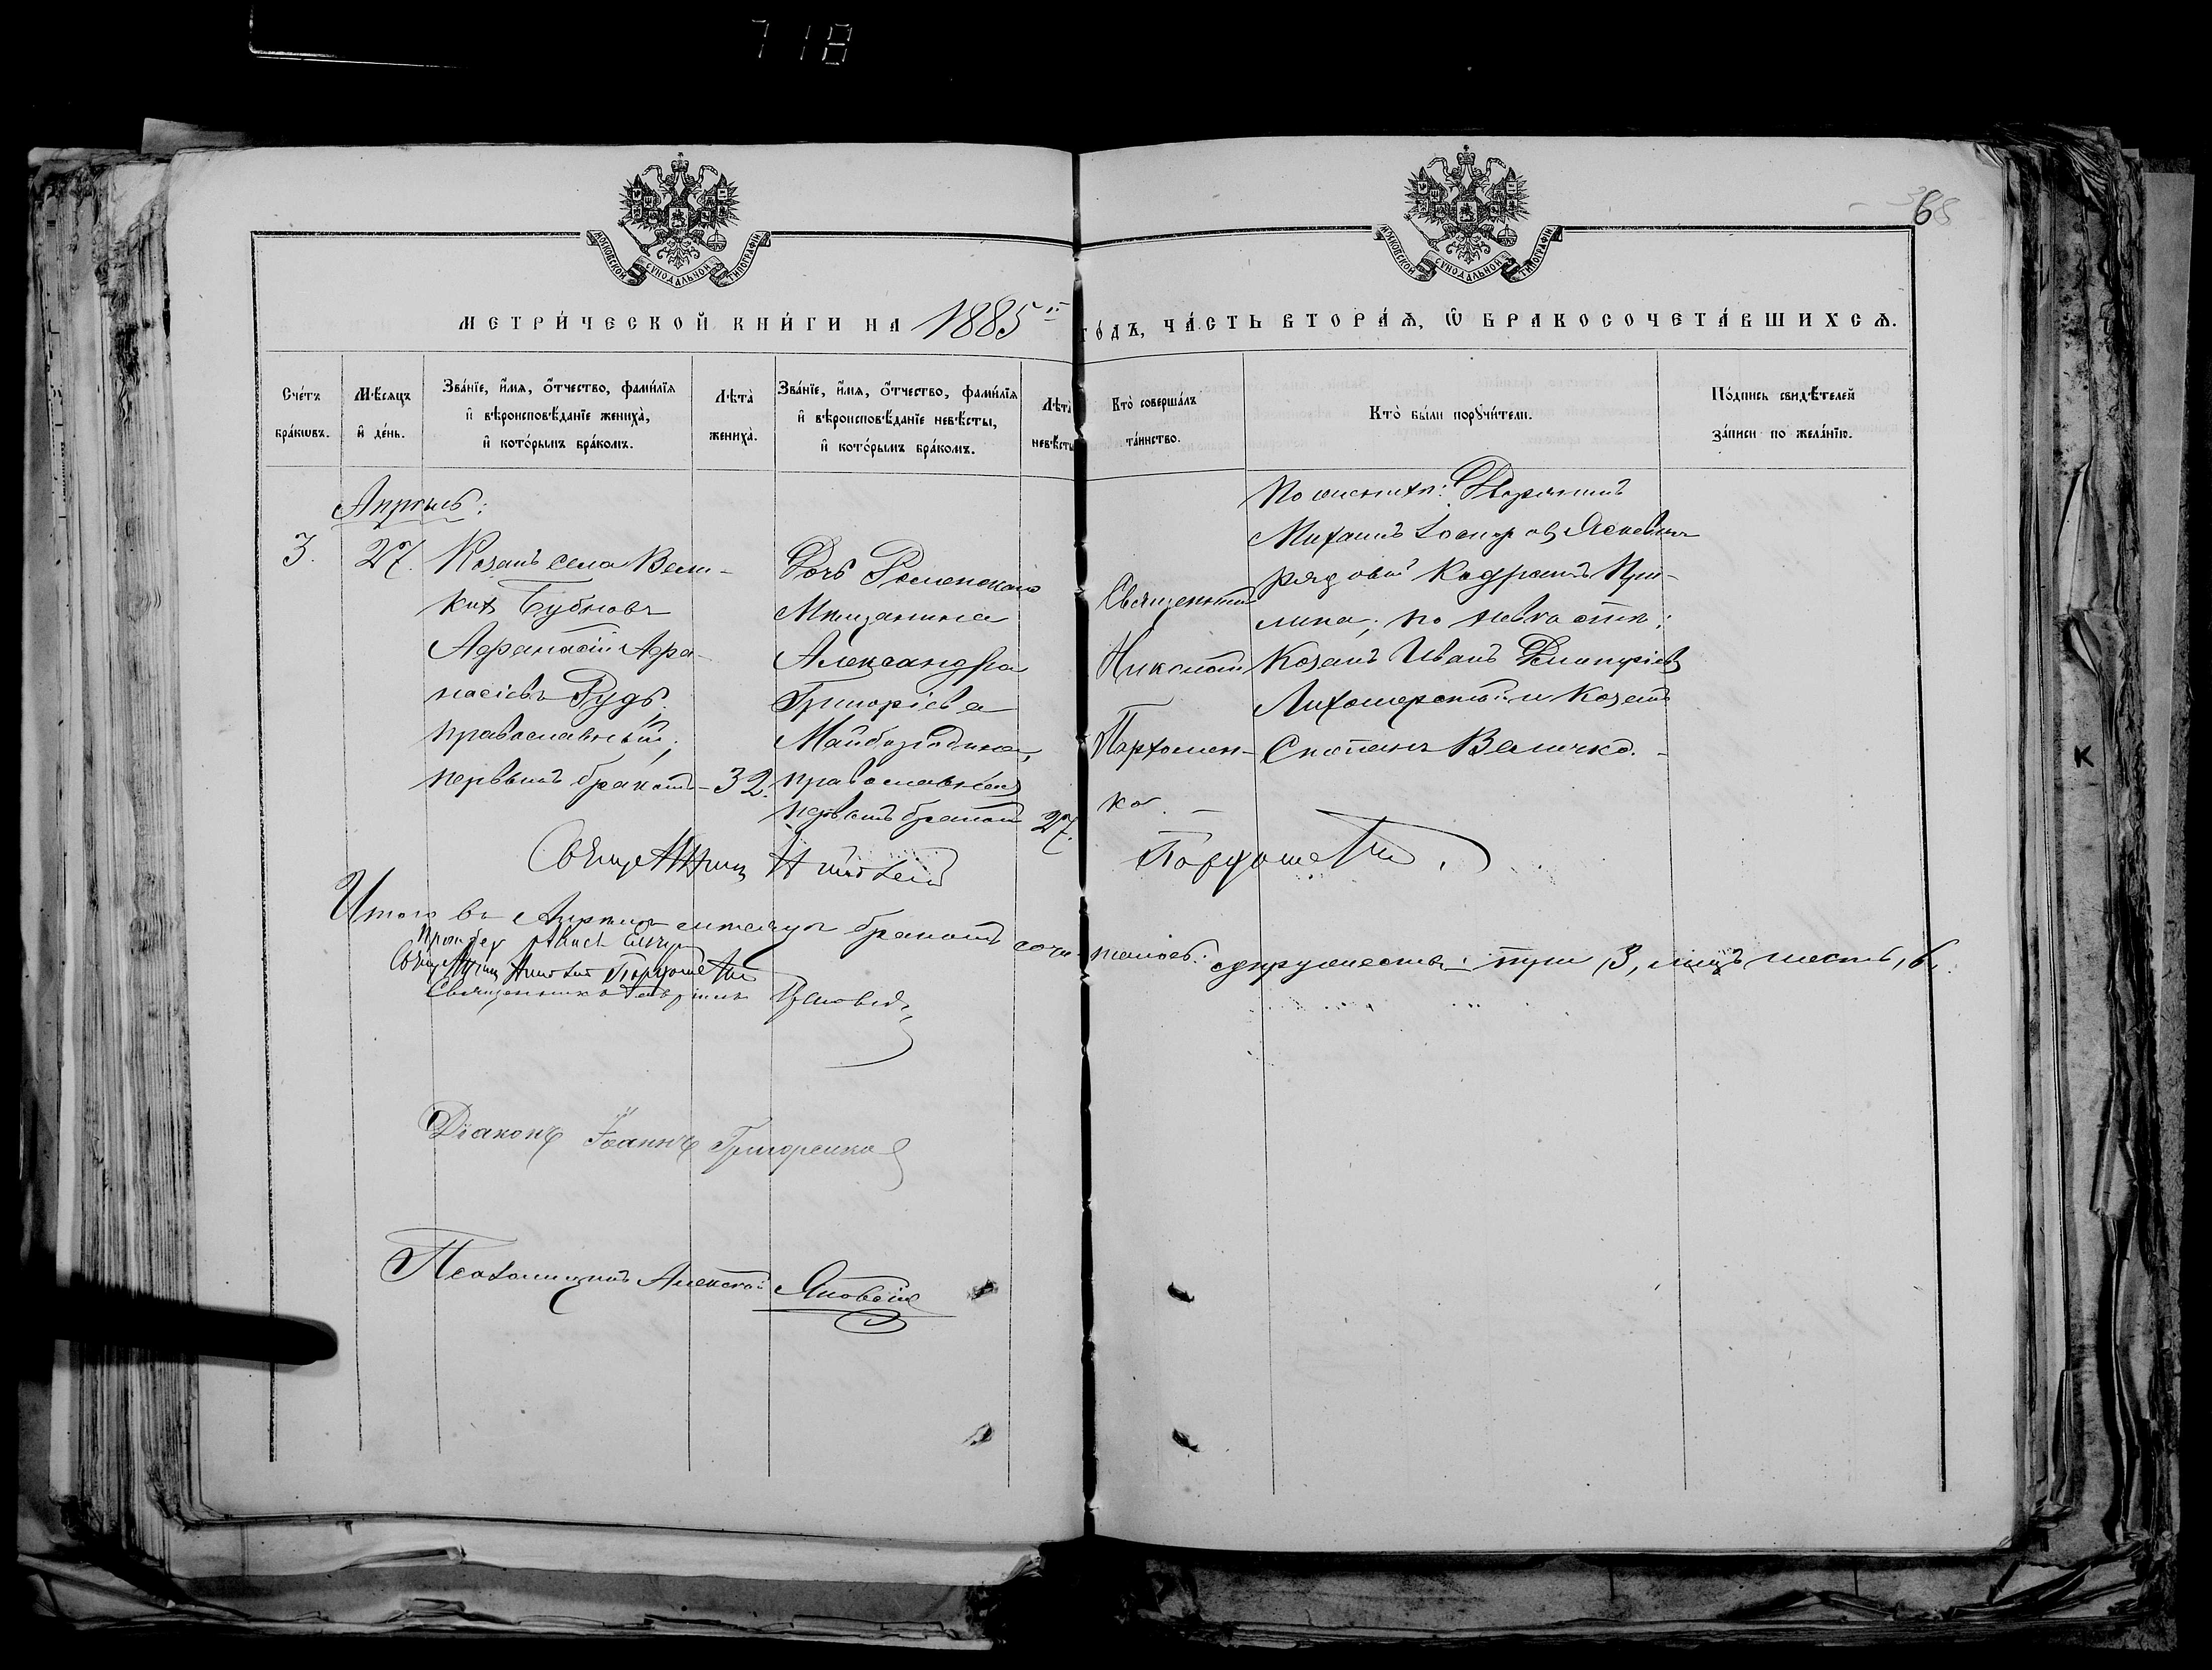 718
МОСКОВСКОЙ СѴНОДАЛЬНОЙ ТИПОГРАФІИ
МОСКОВСКОЙ СѴНОДАЛЬНОЙ ТИПОГРАФІИ
368
6
МЕТРИ́ЧЕСКОЙ КНИ́ГИ НА 1885й ГО́ДЪ, ЧА́СТЬ ВТОРА́Ѧ, Ѽ БРАКОСОЧЕТА́ВШИХСѦ.
Сче́тъ бра́кѡвъ.
Мѣ́сяцъ и҆ де́нь.
Зва́нїе, и҆́мя, о҆́тчество, фами́лїя и҆ вѣроисповѣ́данїе жениха̀, и҆ кото́рымъ бра́комъ.
Лѣта̀ жениха̀.
Зва́нїе, и҆́мя, о҆́тчество, фами́лїя и҆ вѣроисповѣ́данїе невѣ́сты, и҆ кото́рымъ бра́комъ.
Лѣта̀ невѣ́сты
Кто̀ соверша́лъ та́инство.
Кто̀ бы́ли порꙋчи́тели.
По́дпись свидѣ́телей за́писи по жела́нїю.
Апрѣль:
3.
27.
Козакъ села Вели-
кихъ Бубновъ
Афанасій Афа-
насіевъ Рудь.
православный;
первымъ бракомъ
32.
Дочь Роменскаго
Мѣщанина
Александра
Григоріева
православная
первымъ бракомъ
27.
Священникъ
Николай
Пархомен-
ко.
По женихѣ: Дворянинъ
Михаилъ
рядовой
по невѣстѣ:
Козакъ Иванъ Димитріевъ
и Козакъ
Степанъ Величко.
Священникъ Николай Пархоменко.
Итого въ Апрѣлѣ мѣсяцѣ бракомъ сочеталось: супружества: три, 3, лицъ шесть, 6.
Священникъ Николай Пархоменко
Священникъ
Діаконъ Іоаннъ Григоренко
Псаломщикъ Алексѣй Яновскій
К